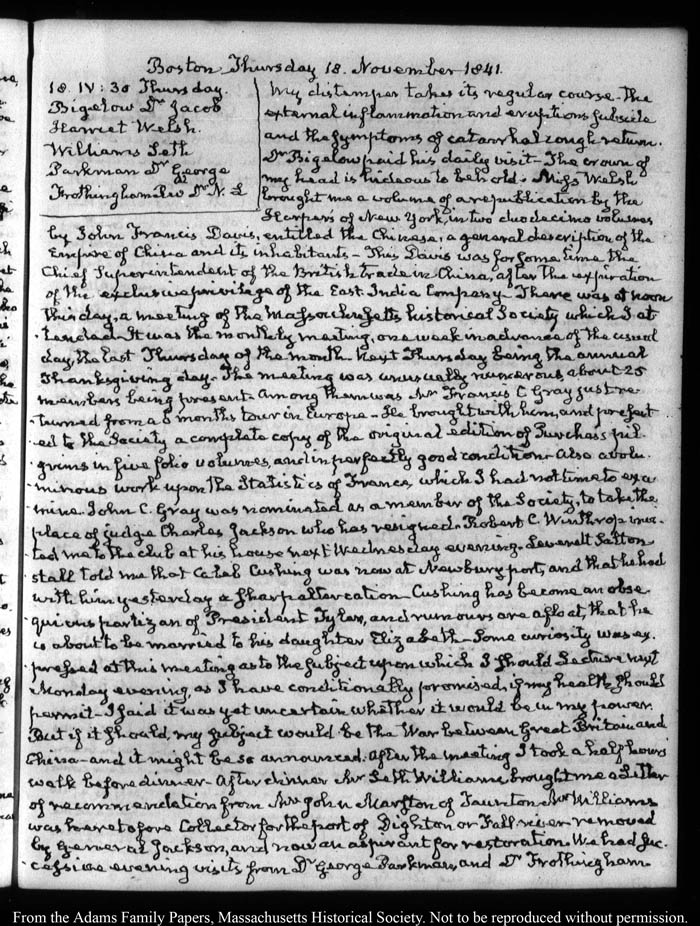 Boston Thursday 18. November 1841.
18. IV:30 Thursday.
Bigelow Dr Jacob
Harriet Welsh.
Williams Seth
Parkman Dr George
Frothingham Rev Dr N. L
My distemper takes its regular course. The
external inflammation and eruptions subside
and the symptoms of catarrhal cough return.
Dr Bigelow paid his daily visit – The crown of
my head is hideous to behold. Miss Welsh
brought me a volume of a republication by the
Harpers of New York, in two duodecimo volumes
by John Francis Davis, entitled the Chinese, a general description of the
Empire of China and its inhabitants – This Davis was for some time the
Chief Superintendent of the British trade in China, after the expiration
of the exclusive privilege of the East India Company – There was at noon
this day, a meeting of the Massachusetts historical Society which I at-
-tended. It was the monthly meeting, one week in advance of the usual
day, the last Thursday of the month next Thursday being the annual
Thanksgiving day – The meeting was unusually numerous about 25
members being present. Among them was Mr Francis C Gray just re-
-turned from a 6 months tour in Europe – He brought with him, and present-
-ed to the Society a complete copy of the original edition of Purchas's pil-
-grims in five folio volumes, and in perfectly good condition – Also a volu-
-minous work upon the Statistics of France, which I had not time to exa-
-mine. John C. Gray was nominated as a member of the Society, to take the
place of judge Charles Jackson who has resigned. Robert C. Winthrop invi-
-ted me to the club at his house next Wednesday evening. Leverett Salton-
-stall told me that Caleb Cushing was now at Newburyport, and that he had
with him yesterday a sharp altercation. Cushing has become an obse-
-quious partizan of President Tyler, and rumours are afloat, that he
is about to be married to his daughter Elizabeth – Some curiosity was ex-
-pressed at this meeting as to the subject upon which I should Lecture next
Monday evening, as I have conditionally promised, if my health should
permit – I said it was yet uncertain whether it would be in my power
But if it should, my subject would be the War between Great Britain and
China – and it might be so announced. After the meeting I took a half hours
walk before dinner – After dinner Mr Seth Williams brought me a Letter
of recommendation from Mr John Marston of Taunton Mr Williams
was heretofore Collector for the port of Dighton or Fall river removed
by General Jackson, and now an aspirant for restoration. We had suc-
-cessive evening visits from Dr George Parkman, and Dr Frothingham.
From the Adams Family Papers, Massachusetts Historical Society. Not to be reproduced without permission.